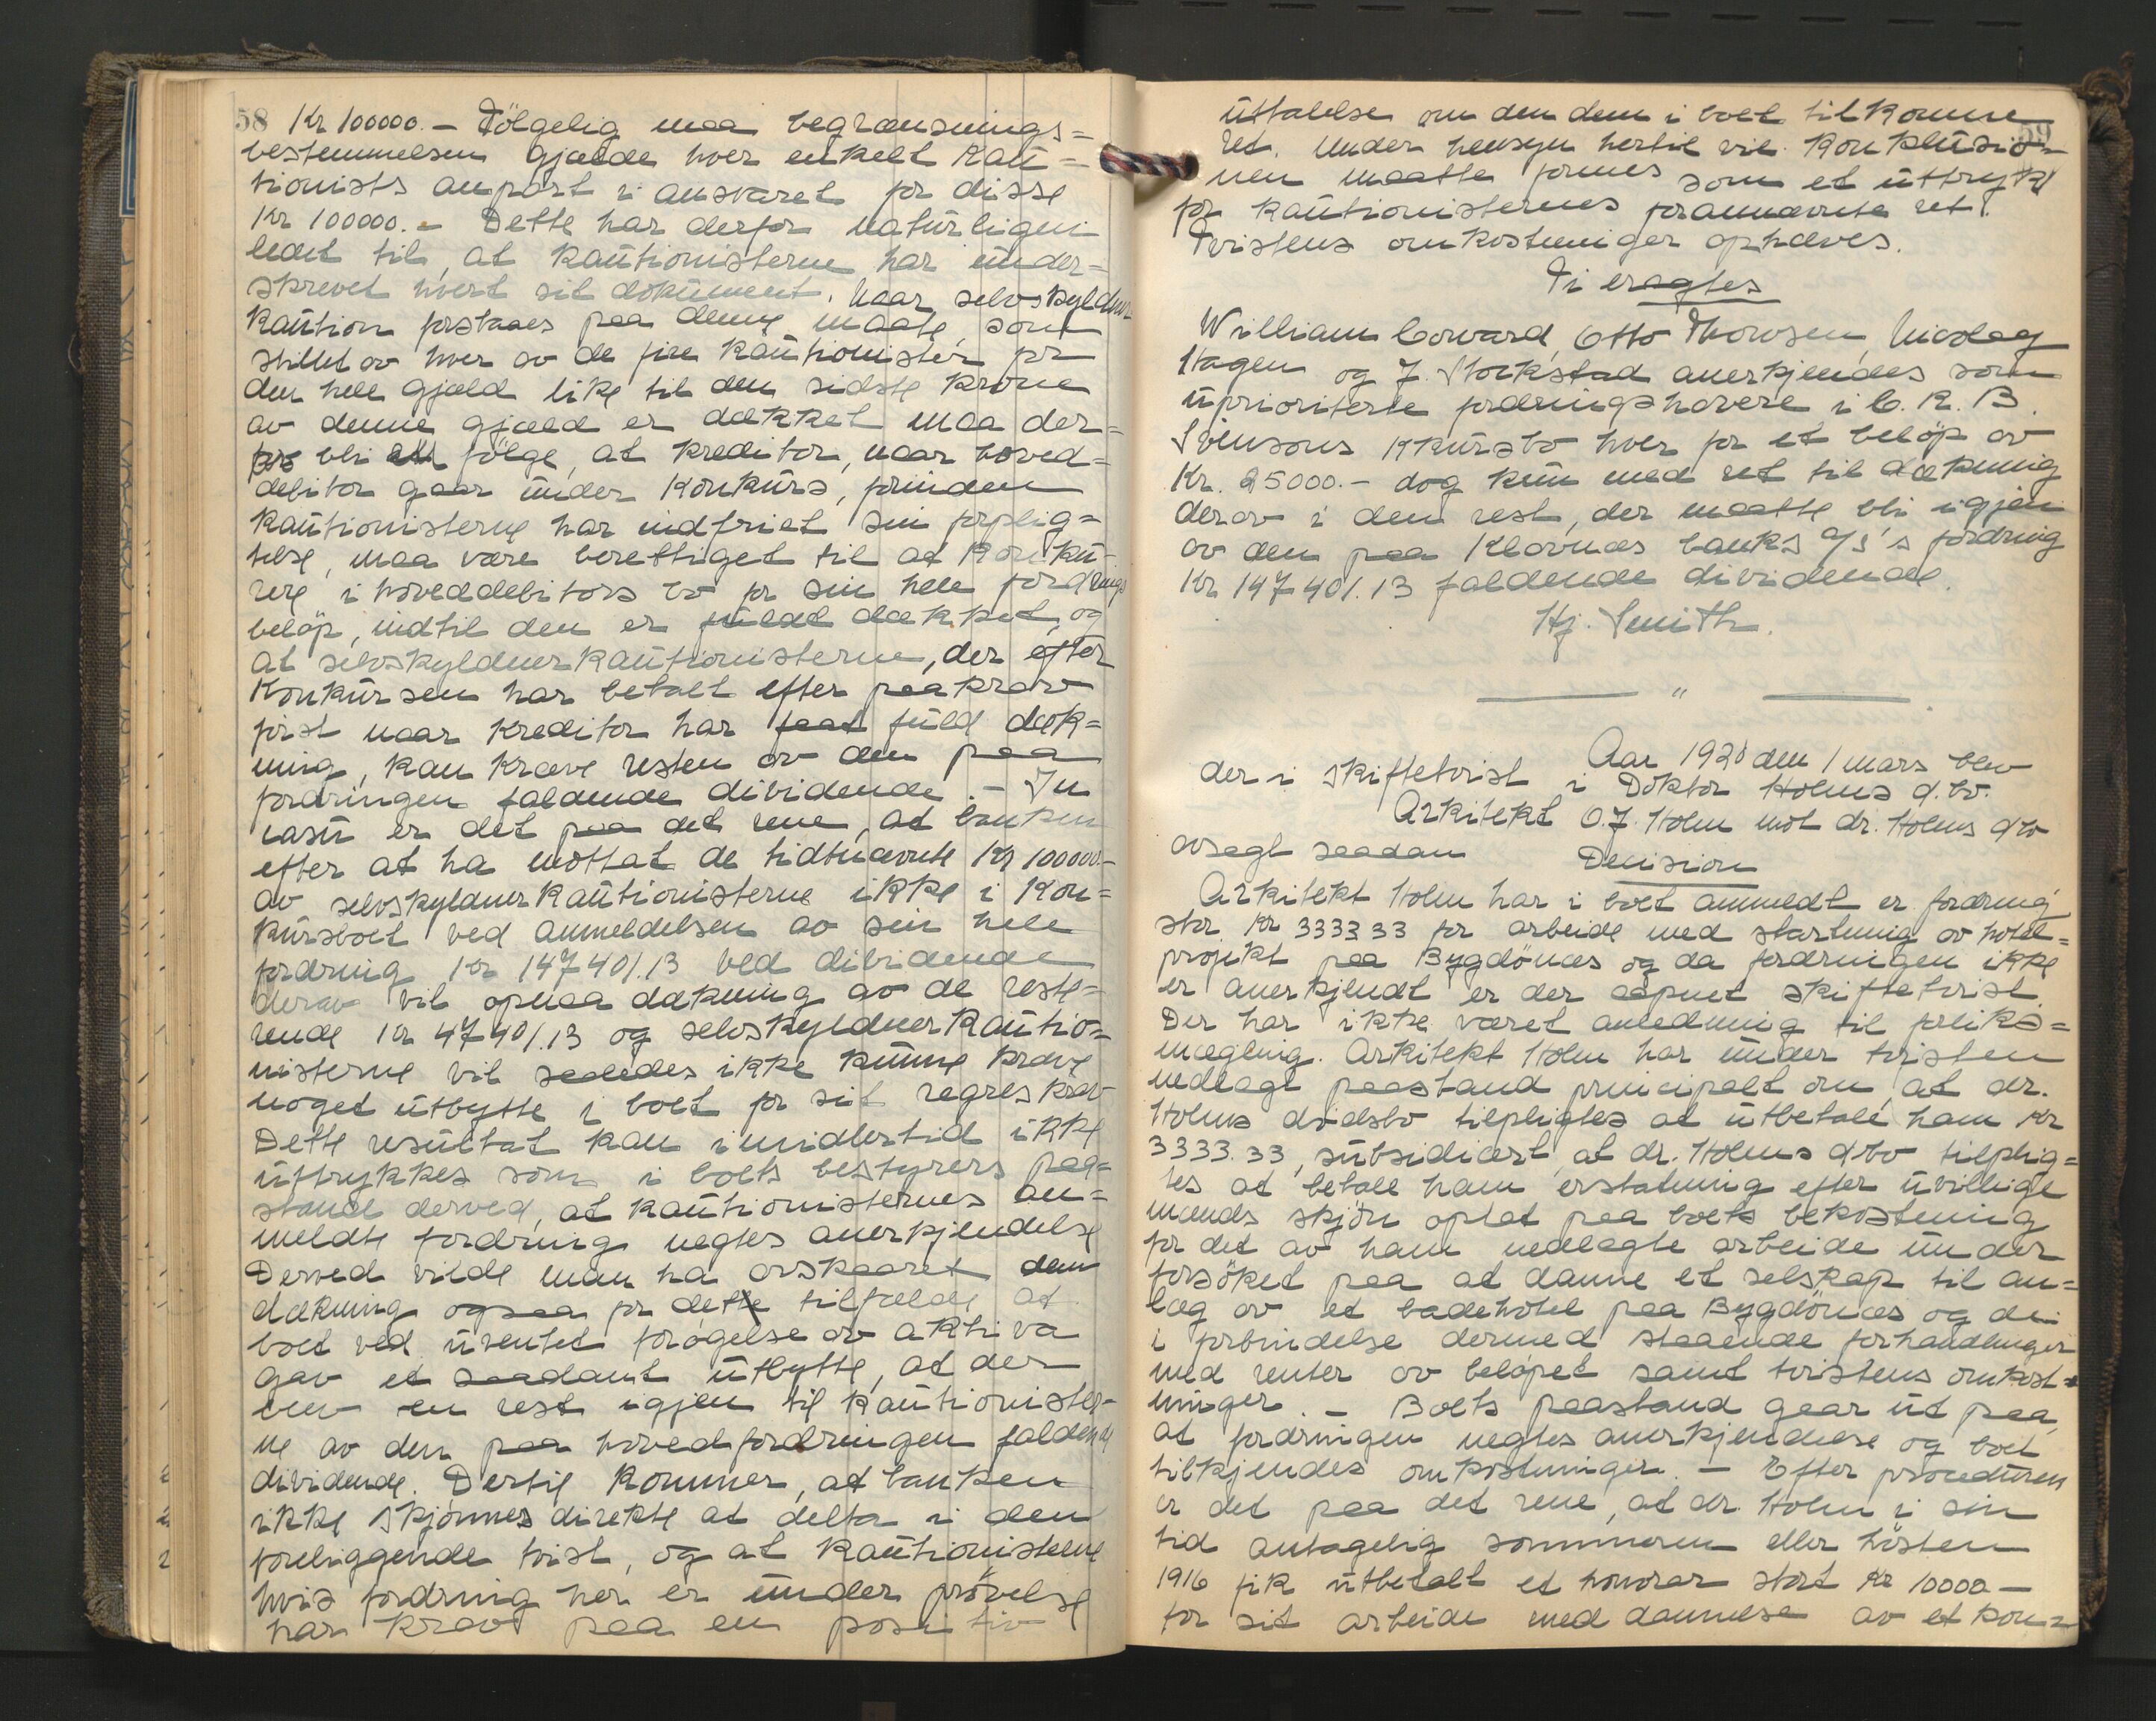 58 Kr 100000.- Følgelig maa begrænsnings=
bestemmelsen gjælde hver enkelt kau=
tionists anpart i ansvaret for disse
Kr 100000.- Dette har derfor naturligen
ledet til, at kautionisterne har under=
skrevet hvert sit dokument. Naar selvskyldner
kaution forstaaes paa denne maate, som
stillet av hver av de fire kautionister for
den hele gjæld like til den sidste krone
av denne gjæld er dækket maa der=
for bli følge, at kreditor, naar hoved=
debitor gaar under konkurs, forinden
kautionisterne har indfriet sin forplig=
telse, maa være berettiget til at konkur=
rere i hoveddebitors bo for sin hele fordrings
beløp, indtil den er fuldt dækket, og
at selvskyldnerkautionisterne, der efter
konkursen har betalt efter paakrav
først naar kreditor har faat fuld dæk=
ning, kan kræve resten av den paa
fordringen faldende dividende. - In
casu er det paa det rene, at banken
efter at ha mottat de tidtnævnte Kr 100000.-
av selvskyldnerkautionisterne ikke i kon=
kursboet ved anmeldelsen av sin hele
fordring Kr 147401.13 ved dividende
derav vil opnaa dækning av de reste=
rende Kr 47401.13 og selvskyldnerkautio=
nisterne vil saaledes ikke kunne kræve
noget utbytte i boet for sit regreskrav
Dette resultat kan imidlertid ikke
uttrykkes som i boets bestyrers paa=
stand derved, at kautionisternes an=
meldte fordring negtes anerkjendelse
Derved vilde man ha avskaaret dem
dækning ogsaa for dette tilfælde at
boet ved uventet forøgelse av aktiva
gav et saadant utbytte, at der
blev en rest igjen til kautionister=
ne av den paa hovedfordringen faldende
dividende. Dertil kommer, at banken
ikke skjønnes direkte at delta i den
foreliggende tvist, og at kautionisterne
hvis fordring her er under prøvelse
har krav paa en positiv
59
uttalelse om den dem i boet tilkomne
ret. Under hensyn hertil vil konklusio=
nen maatte formes som et uttryk
for kautionisternes forannævnte ret.
Tvistens omkostninger ophæves.
Ti eragtes
William Coward, Otto Thowsen, Nicolay
Hagen og F. Stockstad anerkjendes som
uprioriterte fordringshavere i C. R. B.
Svensons kkursbo hver for et beløp av
Kr. 25000.- dog kun med ret til dækning
derav i den rest, der maatte bli igjen
av den paa Klovnæs banks A/S's fordring
Kr 147401.13 faldende dividende.
Hj. Smith.
"
Aar 1920 den 1 mars blev
der i skiftetvist i Doktor Holms d.bo.
Arkitekt O. F. Holm mot dr. Holms dbo
avsagt saadan Decision
Arkitekt Holm har i boet anmeldt en fordring
stor Kr 3333 33 for arbeide med startning av hotel=
projekt paa Bygdønæs og da fordringen ikke
er anerkjendt er der aapnet skiftetvist.
Der har ikke været anledning til forliks=
mægling. Arkitekt Holm har under tvisten
nedlagt paastand principalt om, at dr.
Holms dødsbo tilpligtes at utbetale ham Kr
3333.33, subsidiært, at dr. Holms dbo tilplig=
tes at betale ham erstatning efter uvillige
mænds skjøn optat paa boets bekostning
for det av ham nedlagte arbeide under
forsøket paa at danne et selskap til an=
læg av et badehotel paa Bygdønæs og de
i forbindelse dermed staaende forhandlinger
med renter av beløpet samt tvistens omkost=
ninger. - Boets paastand gaar ut paa
at fordringen negtes anerkjendelse og boet
tilkjendes omkostninger. - Efter proceduren
er det paa det rene, at dr. Holm i sin
tid antagelig sommeren eller høsten
1916 fik utbetalt et honorar stort Kr 10000 -
for sit arbeide med dannelse av et kon=